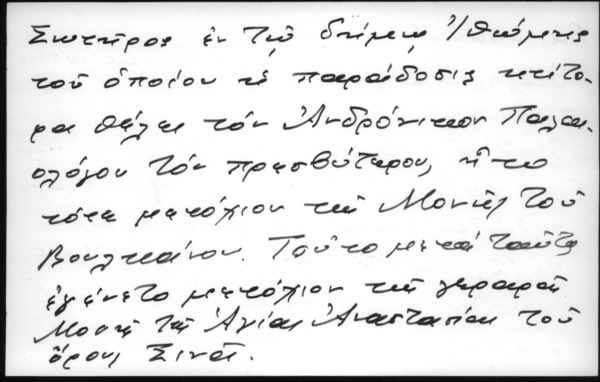 Σωτῆρος ἐν τῷ δήμῳ Ἰθώμης
τοῦ ὁποίου ἡ παράδοσις κτίτο-
ρα θέλει τὸν Ἀνδρόνικον Παλαι-
ολόγον τὸν πρεσβύτερον, ἦτο
τότε μετόχιον τῆς Μονῆς τοῦ
Βουλκάνου. Τοῦτο μετὰ ταῦτα
ἐγένετο μετόχιον τῆς γεραρᾶς
Μονῆς τῆς Ἁγίας Ἀναστασίας τοῦ
ὄρους Σινᾶ.